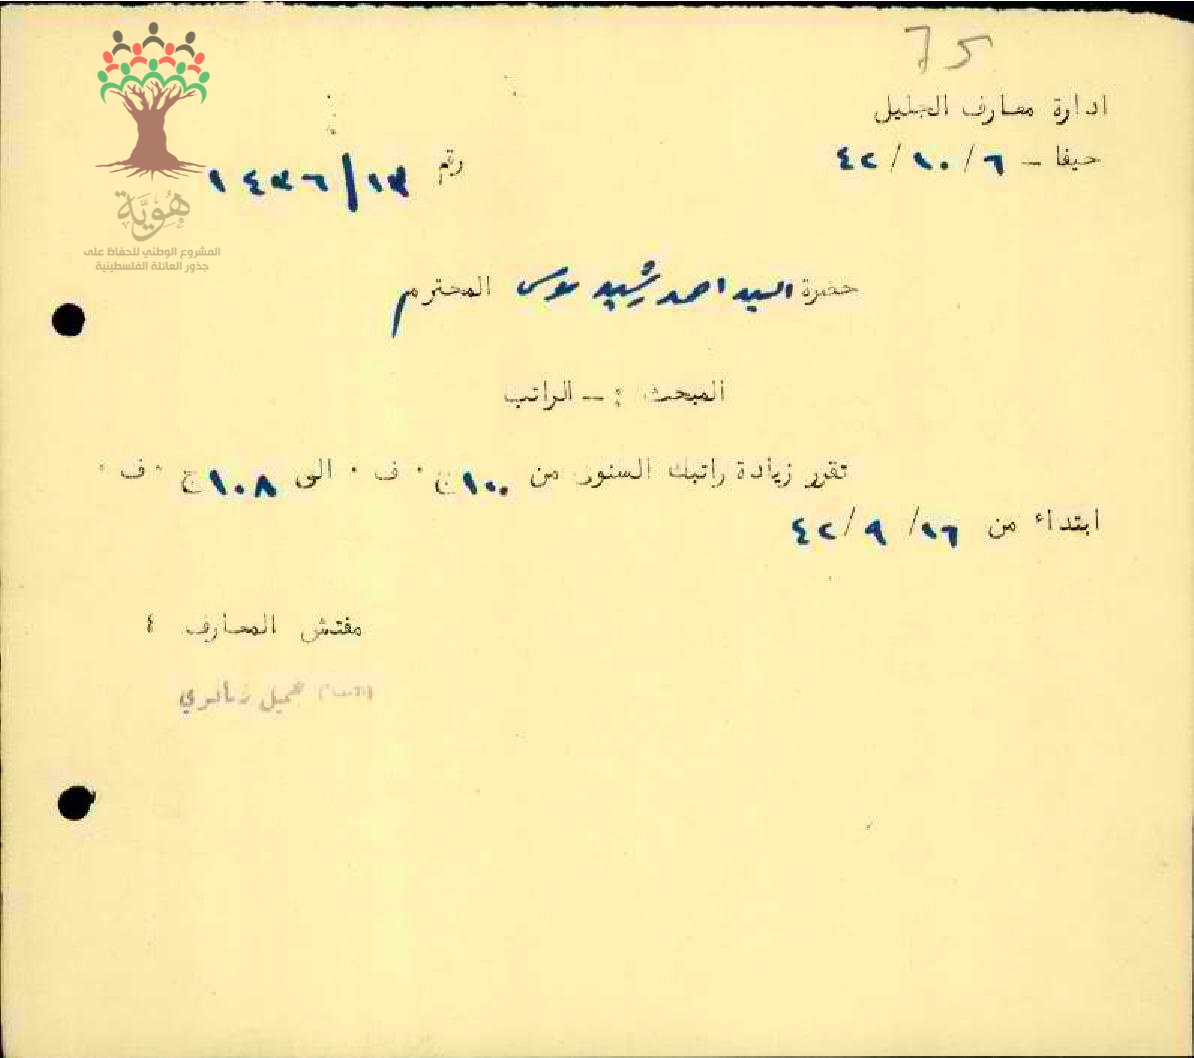 75
ادارة معارف الجليل
حيفا - ٦/١٠/٤٢
رقم ١٤٣٦/١٣
هُوِيَّة
المشروع الوطني للحفاظ على
جذور العائلة الفلسطينية
حضرة السيد احمد رشيد موسى المحترم
المبحث :- الراتب
تقرر زيادة راتبك السنوي من ١٠٠ج ٠ ف ٠ الى ١٠٨ج ٠ ف ٠
ابتداء من ١٦/ ٩/ ٤٢
مفتش المعارف ٤
جميل